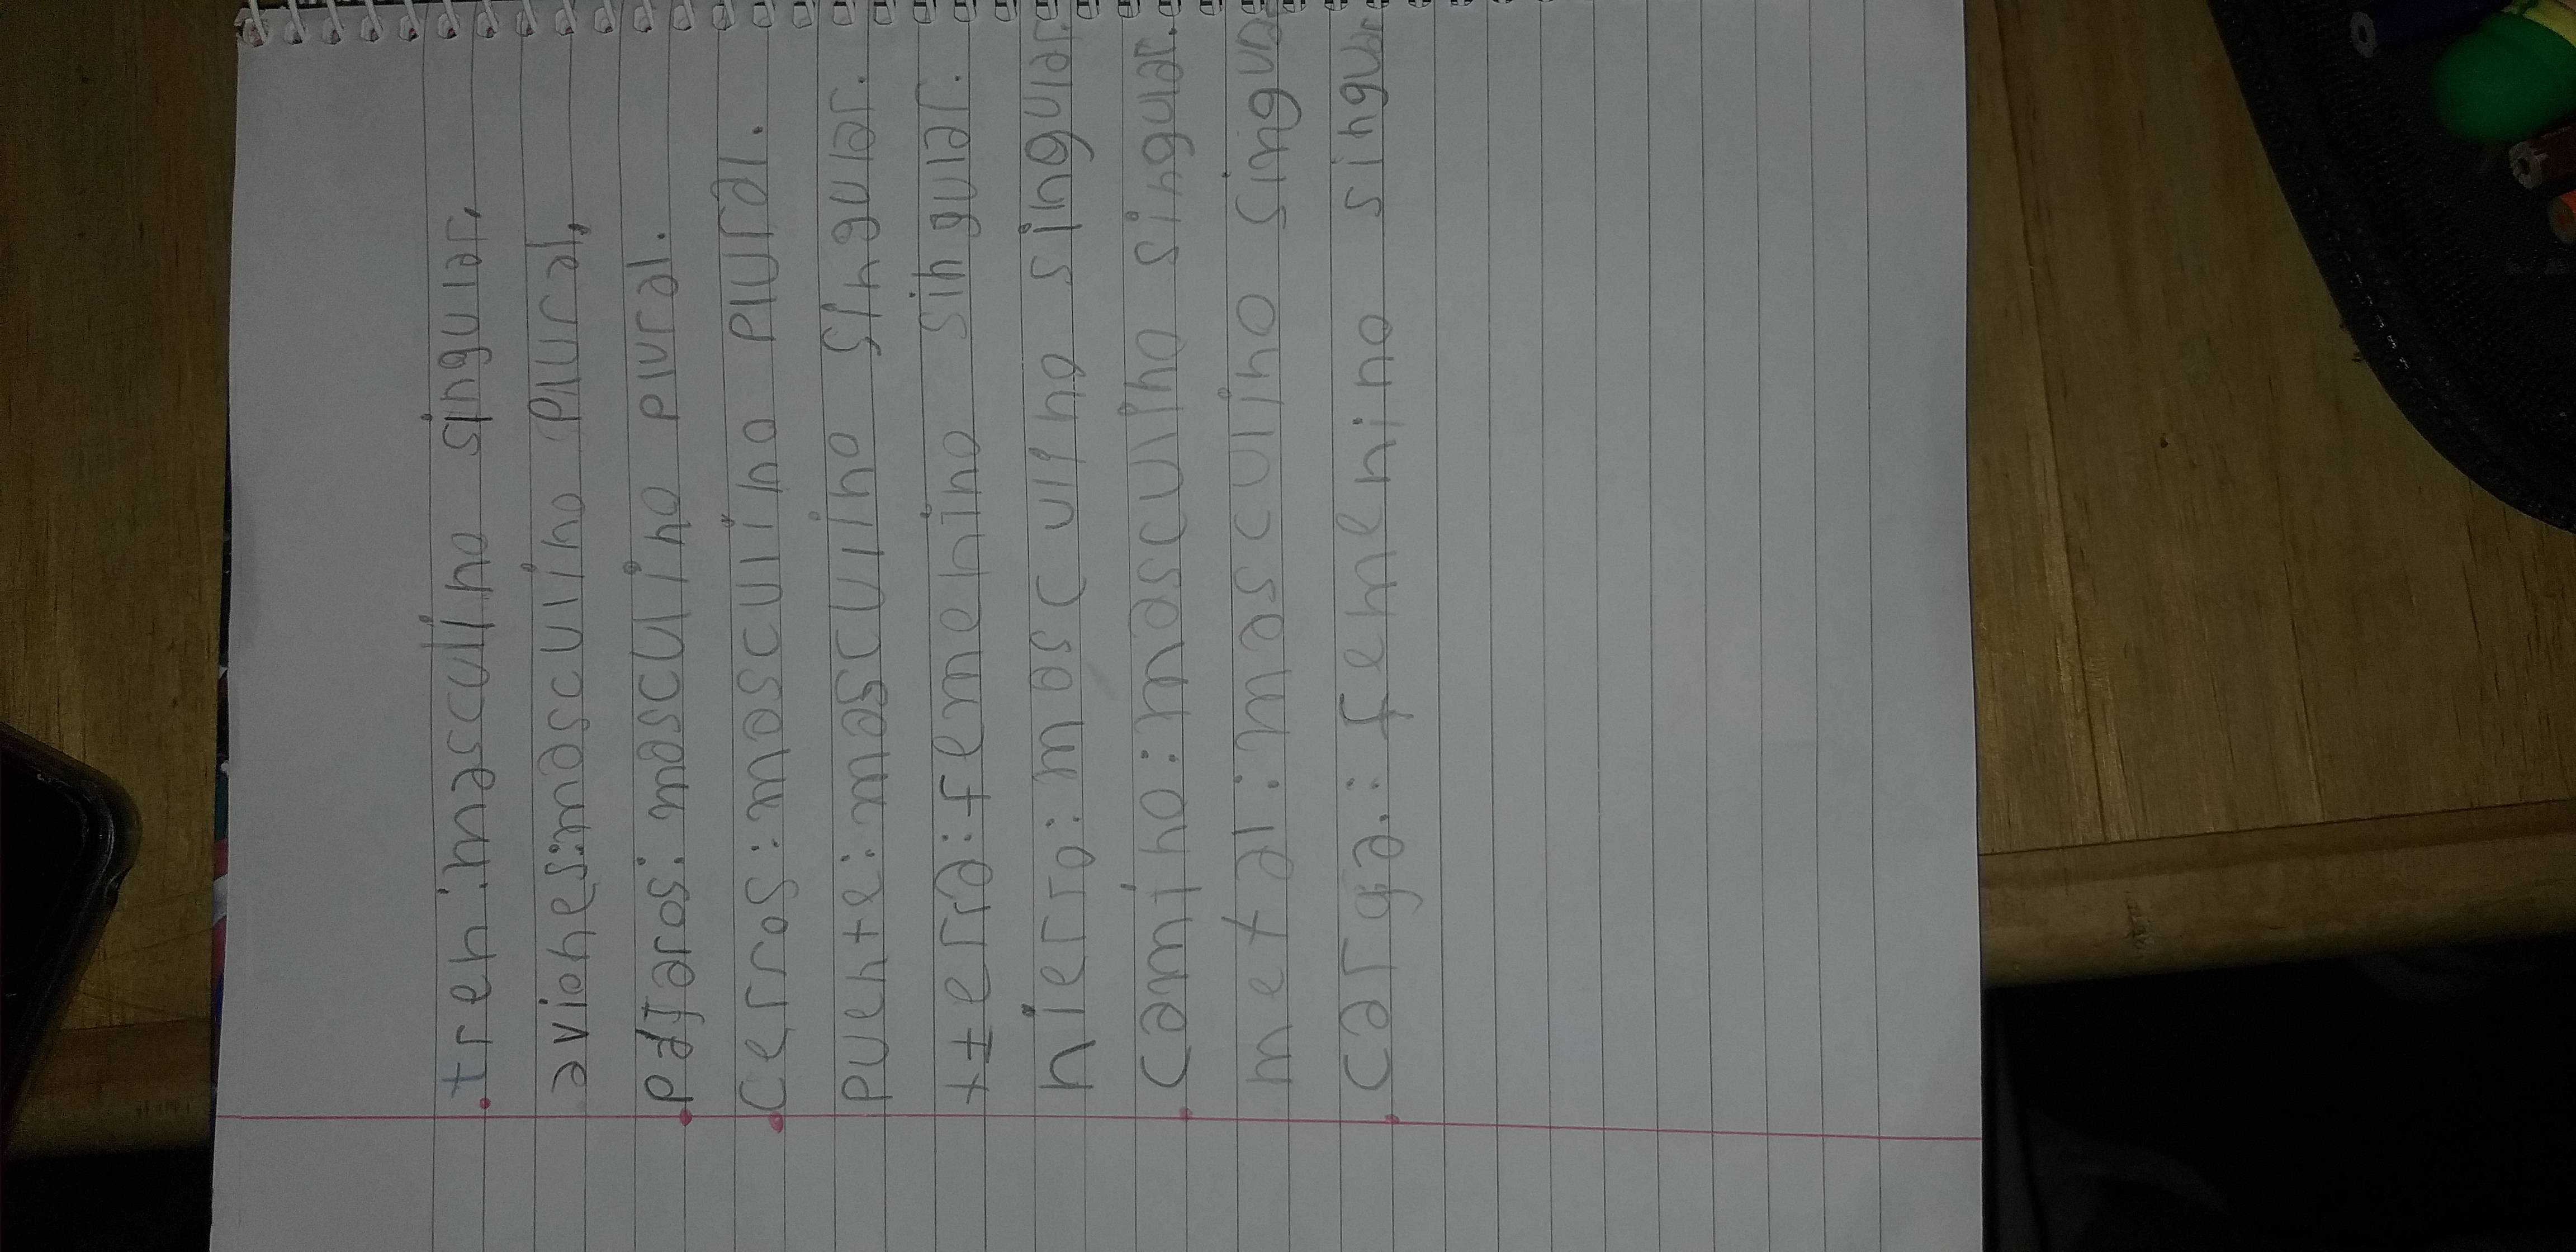 tren:masculino singular,
aviones:masculino plural,
pájaros: masculino plural.
Cerros:masculino plural.
puente:masculino singular.
tierra:femenino singular.
hierro:masculino singular
Camino:masculino singular.
metal:masculino singular
carga.:femenino singular